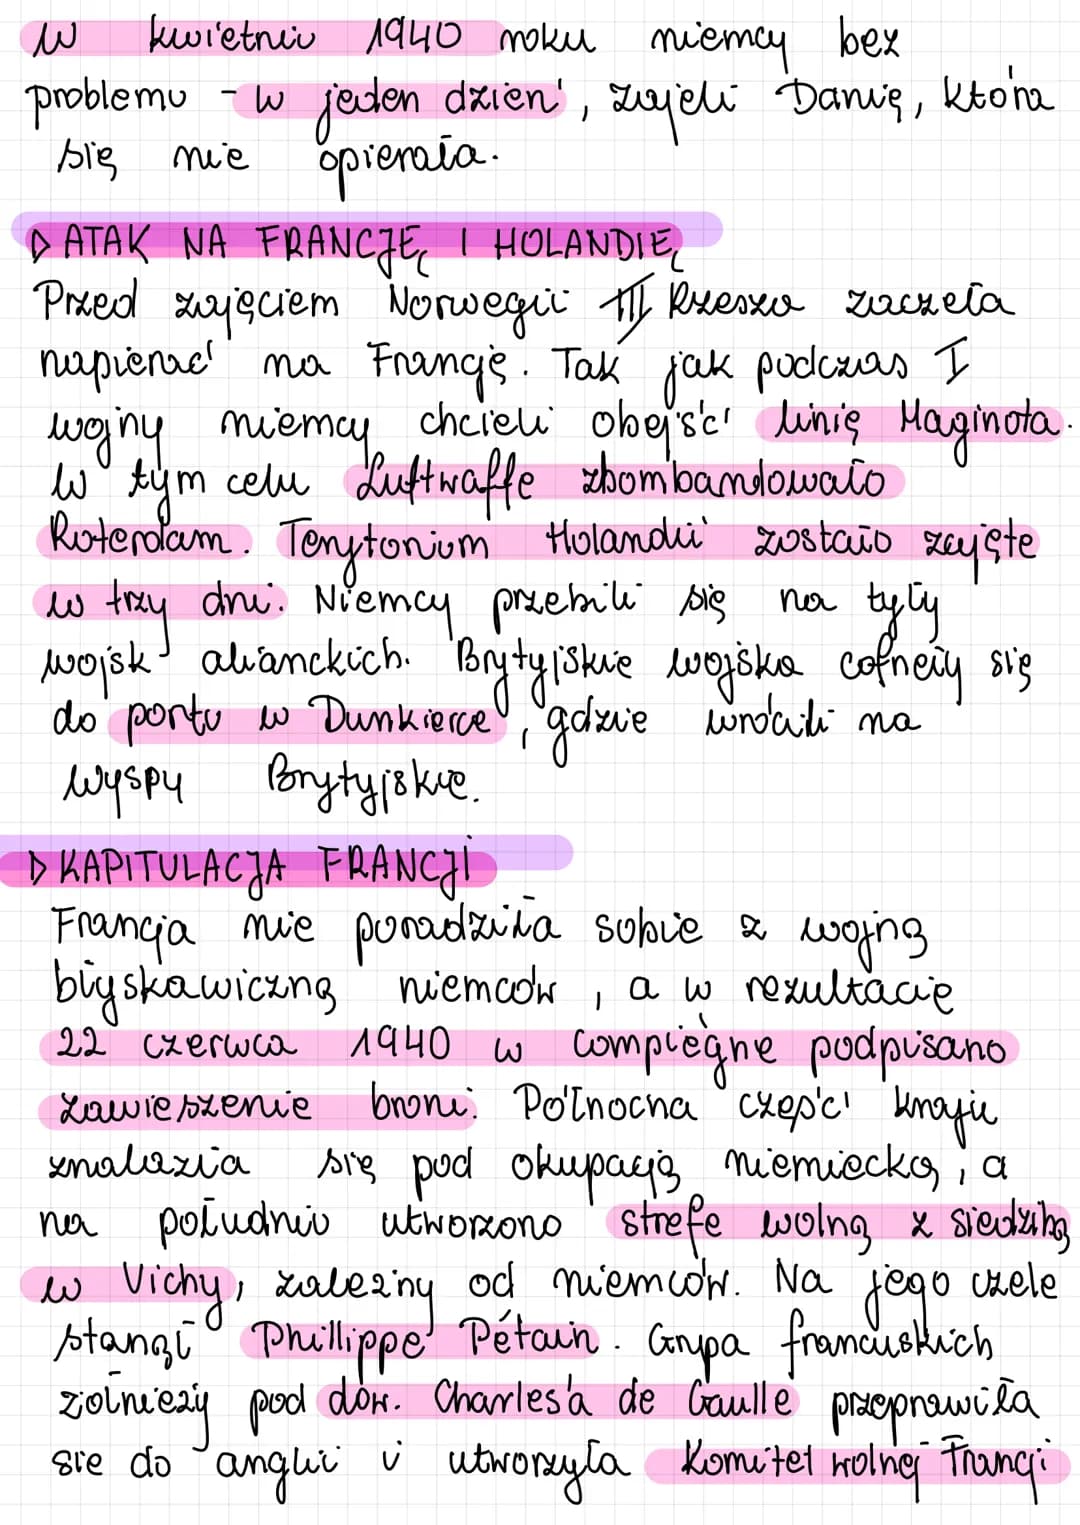 W kwietniu 1940 roku niemcy bez
problemu - w jeden dzień, zajeli Danię, która
się nie opierała.
▷ ATAK NA FRANCJĘ I HOLANDIĘ
Przed zajęciem Norwegii III Rzesza zaczeła
napierać na Francję. Tak jak podczas I
wojny niemcy chcieli obejść linię Maginota.
W tym celu Luftwaffe zbombardowało
Roterdam. Terytorium Holandii zostało zajęte
w trzy dni. Niemcy przebili się na tyły
wojsk alianckich. Brytyjskie wojska cofneły się
do portu w Dunkierce, gdzie wrócili na
wyspy Brytyjskie.
▷ KAPITULACJA FRANCJI
Francja nie poradziła sobie z wojną
błyskawiczną niemców, a w rezultacie
22 czerwca 1940 w Compiègne podpisano
zawieszenie broni. Północna część kraju
znalazła się pod okupacją niemiecką, a
na południu utworzono strefe wolną z siedzibą
w Vichy, zależny od niemców. Na jego czele
stanął Phillippe Pétain. Grupa francuskich
żołnieży pod dow. Charles'a de Gaulle przeprawiła
sie do anglii i utworzyła Komitet wolnej Francji